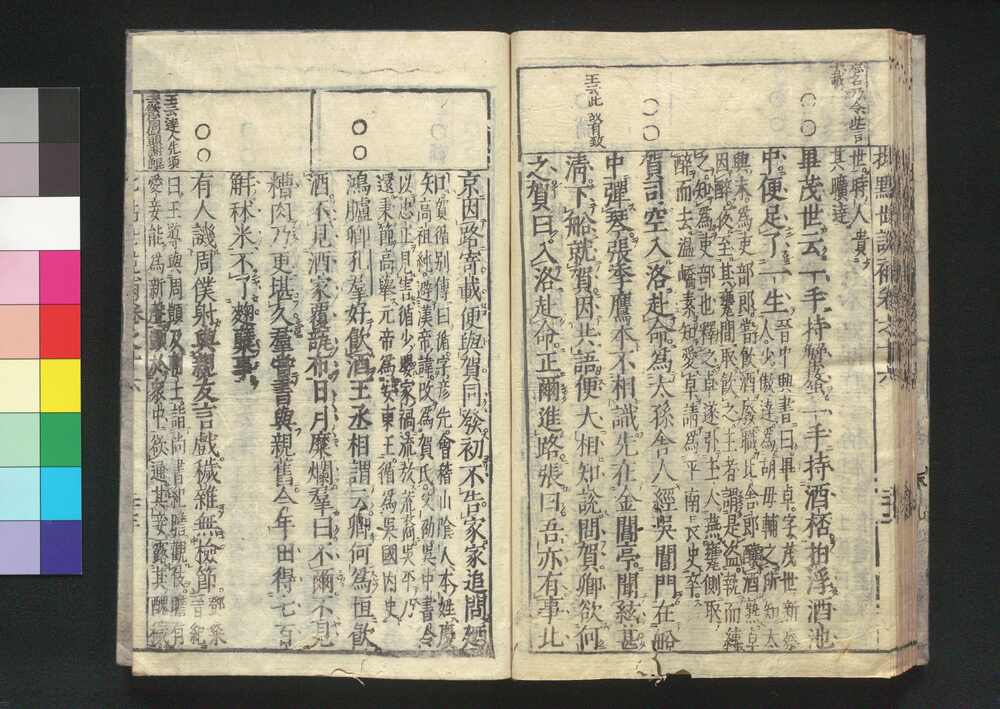 世時人貴
其曠達
畢茂世云一手持蟹螯一手持酒桮拍浮酒池
中便足了一生
晉中興書曰畢卓字茂世新蔡
人少傲達爲胡毋輔之所知太
興末爲吏部郎嘗飲酒廢職比舍郎釀酒熟卓
因醉夜至其甕間取飲之主者謂是盜執而縛
之知爲吏部也釋之卓遂引主人燕甕側取
醉而去温嶠素知愛卓請爲平南長史卒
賀司空入洛赴命爲太孫舍人經吳閶門在船
中彈琴張季鷹本不相識先在金閶亭聞絃甚
清下船就賀因共語便大相知說問賀卿欲何
之賀曰入洛赴命正爾進路張曰吾亦有事北
王云此故有致
京因路寄載便與賀同發初不告家家追問廼
知
賀循別傳曰循字彥先會稽山陰人本姓慶
高祖純避漢帝諱改爲賀氏父劭吳中書令
以忠正見害循少嬰家禍流放荒裔吳平乃
還秉節高舉元帝爲安東王循爲吳國内史
鴻臚卿孔羣好飲酒王丞相謂云卿何爲恒飲
酒不見酒家覆瓿布日月糜爛羣曰不爾不見
糟肉乃更堪久羣嘗書與親舊今年田得七百
斛秫米不了麴糵事
有人譏周僕射與親友言戲穢雜無檢節
鄧粲
晉紀
曰王導與周顗及朝士詣尚書紀瞻觀伎瞻有
愛妾能爲新聲顗於衆中欲通其妾露其醜穢
王云達人先須